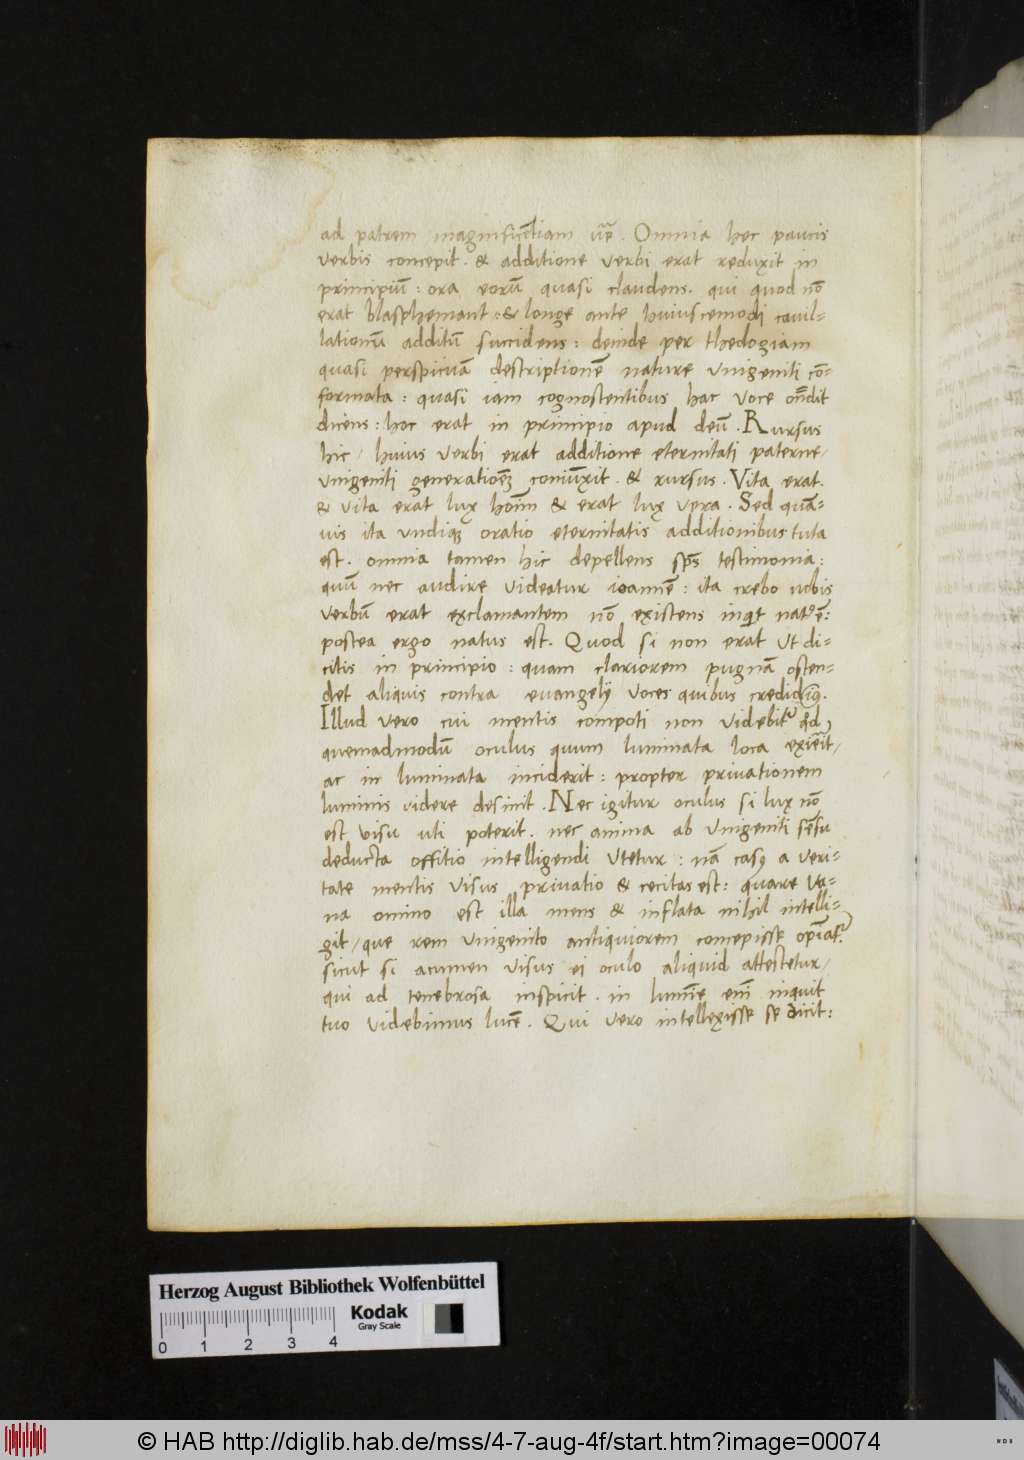 ad patrem magnificētiam Omnia hec paucis
verbis concepit. & additione verbi erat reduxit in
principiū: ora eorū quasi claudens. qui quod nō
erat blasphemant: & longe ante huiuscemodi cauil=
lationū additū succidens: deinde per theologiam
quasi perspicuā descriptionē nature vnigeniti cō=
formata: quasi iam cognoscentibus hac voce on̄dit
dicens: hoc erat in principio apud deū. Rursus
hic/ huius verbi erat additione eternitati paterne/
vnigeniti generationē coniūxit. & rursus. Vita erat.
& vita erat lux hoīm & erat lux vera. Sed quā=
uis ita vndiqꝫ oratio eternitatis additionibus tuta
est. omnia tamen hic depellens sp̄s testimonia:
quū nec audire videatur ioannē: ita crebo nobis
verbū erat exclamantem nō existens inquit
postea ergo natus est. Quod si non erat vt di=
citis in principio: quam clariorem pugnā osten=
det aliquis contra euangelÿ voces quibus
Illud vero cui mentis compoti non videbit᷑ qd,
quemadmodū oculus quum luminata loca
ac in luminata inciderit: propter priuationem
luminis videre desinit. Nec igitur oculus si lux nō
est visu uti poterit. nec anima ab vnigeniti sēsu
deducta offitio intelligendi vtetur: nā casꝰ a veri=
tate mentis visus priuatio & cecitas est: quare va=
na omino est illa mens & inflata nihil intelli=
git/ que rem vnigenito antiquiorem concepisse
sicut si acumen visus ei oculo aliquid attestetur/
qui ad tenebrosa inspicit. in lumīe em̄ inquit
tuo videbimus lucē. Qui vero intellexisse se dicit:
Herzog August Bibliothek Wolfenbüttel
Kodak
Gray Scale
0 1 2 3 4
© HAB http://diglib.hab.de/mss/4-7-aug-4f/start.htm?image=00074